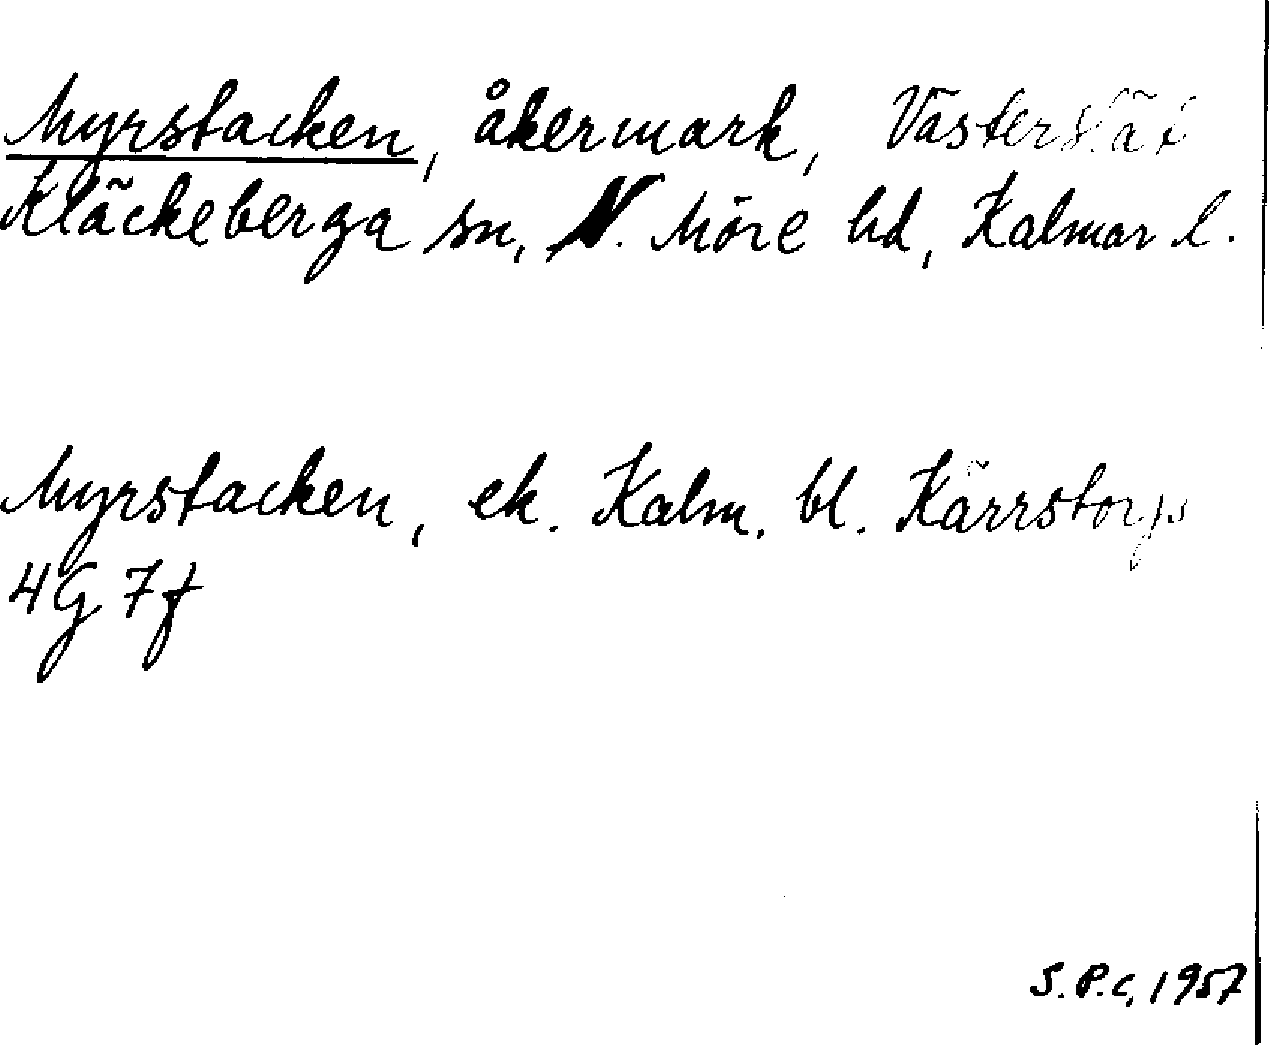 Myrstacken, åkermark, Västerslät
Kläckeberga sn, N. Möre hd, Kalmar l.
Myrstacken, ek. Kalm. bl. Kärrstorps
4G 7f
S.P.C, 1957